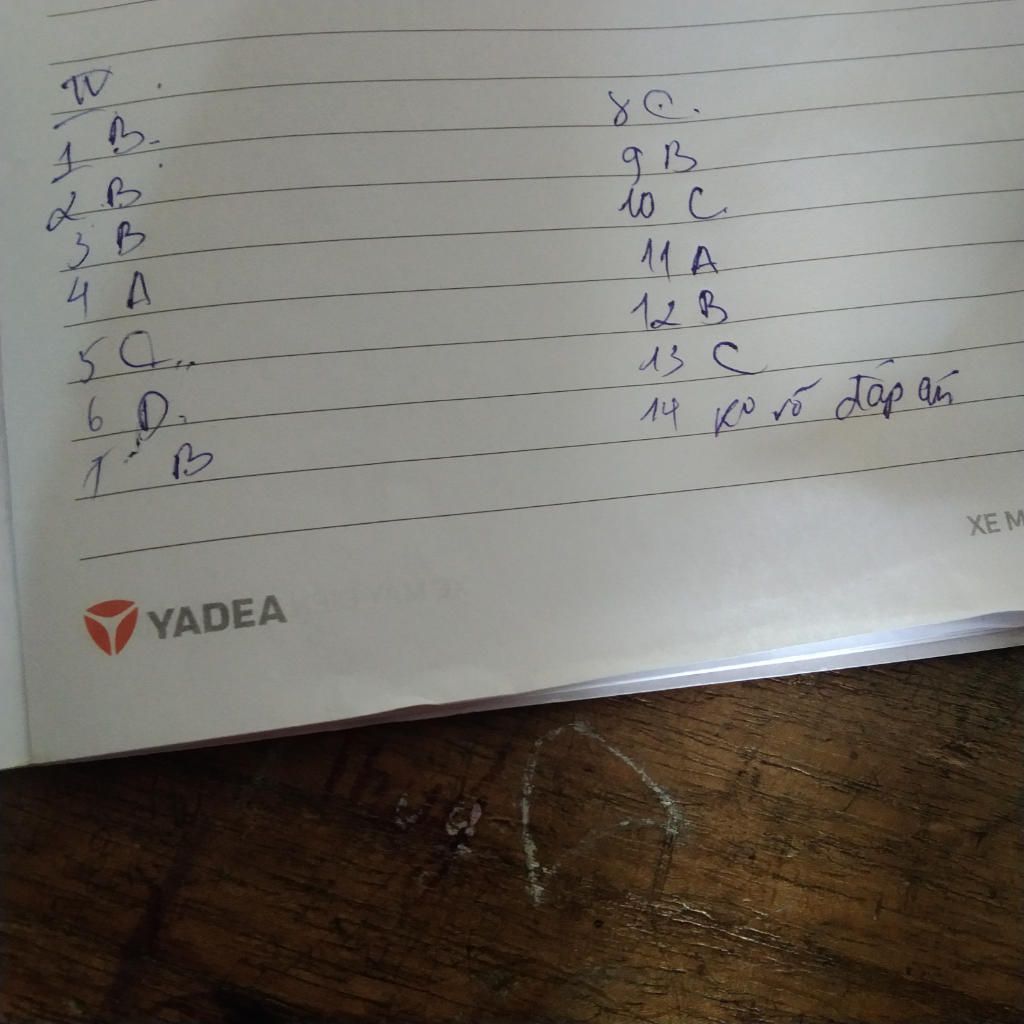 IV
1 B.
2 B
3 B
4 A
5 C
6 D.
7 B
8 C.
9 B
10 C
11 A
12 B
13 C
14 ko rõ đáp án
YADEA
XE M